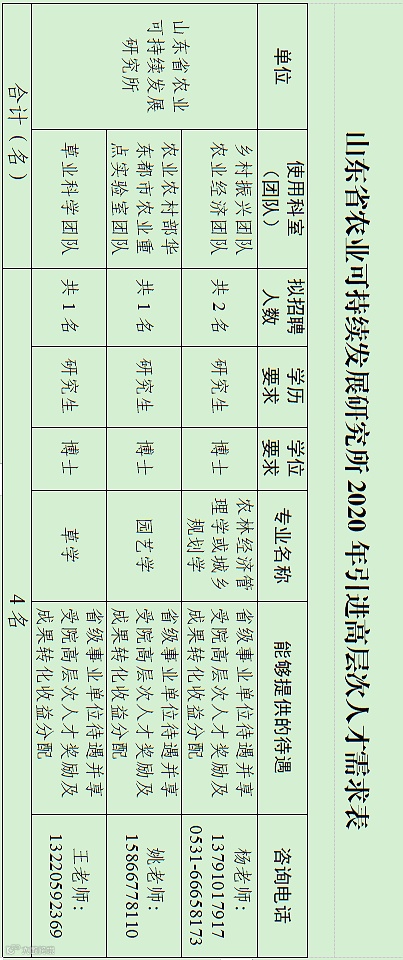 山东省农业可持续发展研究所2020年引进高层次人才需求表
单位
使用科室
（团队）
拟招聘
人数
学历
要求
学位
要求
专业名称
能够提供的待遇
咨询电话
山东省农业
可持续发展
研究所
乡村振兴团队
农业经济团队
共2名
研究生
博士
农林经济管
理学或城乡
规划学
省级事业单位待遇并享
受院高层次人才奖励及
成果转化收益分配
杨老师：
13791017917
0531-66658173
农业农村部华
东都市农业重
点实验室团队
共1名
研究生
博士
园艺学
省级事业单位待遇并享
受院高层次人才奖励及
成果转化收益分配
姚老师：
15866778110
草业科学团队
共1名
研究生
博士
草学
省级事业单位待遇并享
受院高层次人才奖励及
成果转化收益分配
王老师：
13220592369
合计（名）
4名